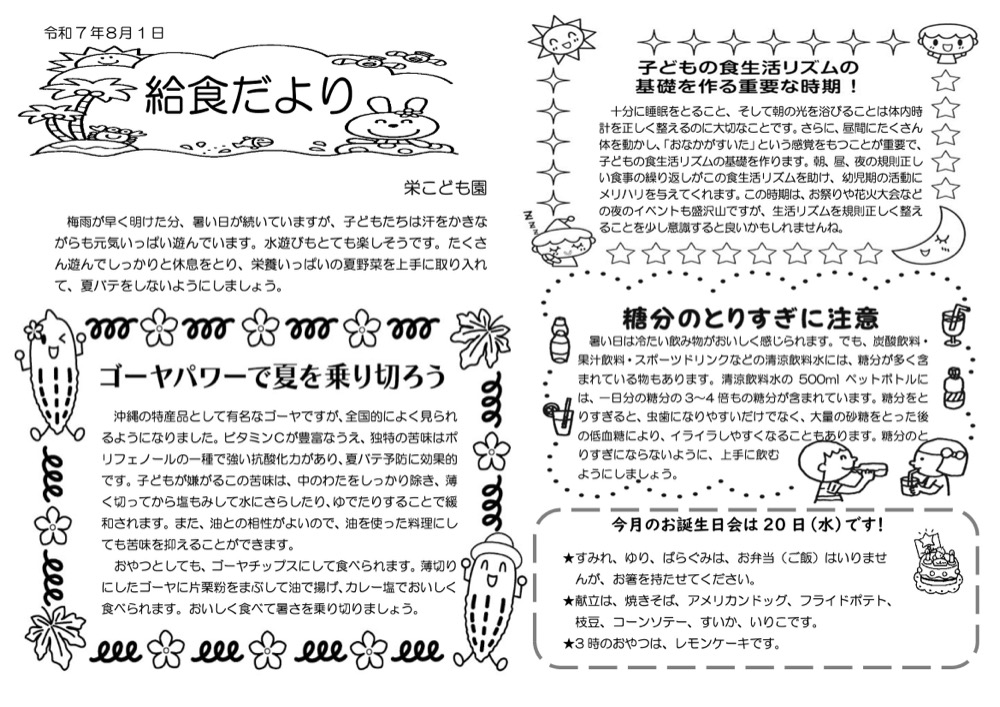 令和7年8月1日
給食だより
栄こども園
梅雨が早く明けた分、暑い日が続いていますが、子どもたちは汗をかきな
がらも元気いっぱい遊んでいます。水遊びもとても楽しそうです。たくさ
ん遊んでしっかりと休息をとり、栄養いっぱいの夏野菜を上手に取り入れ
て、夏バテをしないようにしましょう。
ゴーヤパワーで夏を乗り切ろう
沖縄の特産品として有名なゴーヤですが、全国的によく見られ
るようになりました。ビタミンCが豊富なうえ、独特の苦味はポ
リフェノールの一種で強い抗酸化力があり、夏バテ予防に効果的
です。子どもが嫌がるこの苦味は、中のわたをしっかり除き、薄
く切ってから塩もみして水にさらしたり、ゆでたりすることで緩
和されます。また、油との相性がよいので、油を使った料理にし
ても苦味を抑えることができます。
おやつとしても、ゴーヤチップスにして食べられます。薄切り
にしたゴーヤに片栗粉をまぶして油で揚げ、カレー塩でおいしく
食べられます。おいしく食べて暑さを乗り切りましょう。
子どもの食生活リズムの
基礎を作る重要な時期！
十分に睡眠をとること、そして朝の光を浴びることは体内時
計を正しく整えるのに大切なことです。さらに、昼間にたくさん
体を動かし、「おなかがすいた」という感覚をもつことが重要で、
子どもの食生活リズムの基礎を作ります。朝、昼、夜の規則正し
い食事の繰り返しがこの食生活リズムを助け、幼児期の活動に
メリハリを与えてくれます。この時期は、お祭りや花火大会など
の夜のイベントも盛沢山ですが、生活リズムを規則正しく整え
ることを少し意識すると良いかもしれませんね。
ZZZ
糖分のとりすぎに注意
暑い日は冷たい飲み物がおいしく感じられます。でも、炭酸飲料・
果汁飲料・スポーツドリンクなどの清涼飲料水には、糖分が多く含
まれている物もあります。清涼飲料水の 500ml ペットボトルに
は、一日分の糖分の3～4倍もの糖分が含まれています。糖分をと
りすぎると、虫歯になりやすいだけでなく、大量の砂糖をとった後
の低血糖により、イライラしやすくなることもあります。糖分のと
りすぎにならないように、上手に飲む
ようにしましょう。
今月のお誕生日会は 20 日（水）です！
★すみれ、ゆり、ばらぐみは、お弁当（ご飯）はいりませ
んが、お箸を持たせてください。
★献立は、焼きそば、アメリカンドッグ、フライドポテト、
枝豆、コーンソテー、すいか、いりこです。
★3時のおやつは、レモンケーキです。